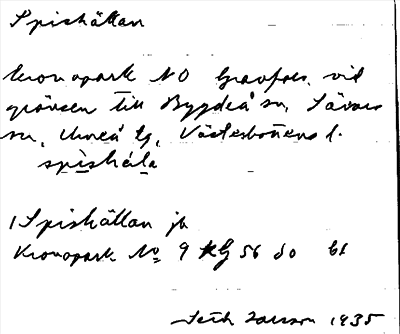 Spishällan
Kronopark NO Gravfors, vid
gränsen till Bygdeå sn, Sävars
sn, Umeå tg, Västerbottens l.
spishäla
1 Spishällan jb
Kronopark No 9 56 do bl
Seth Larsson 1935